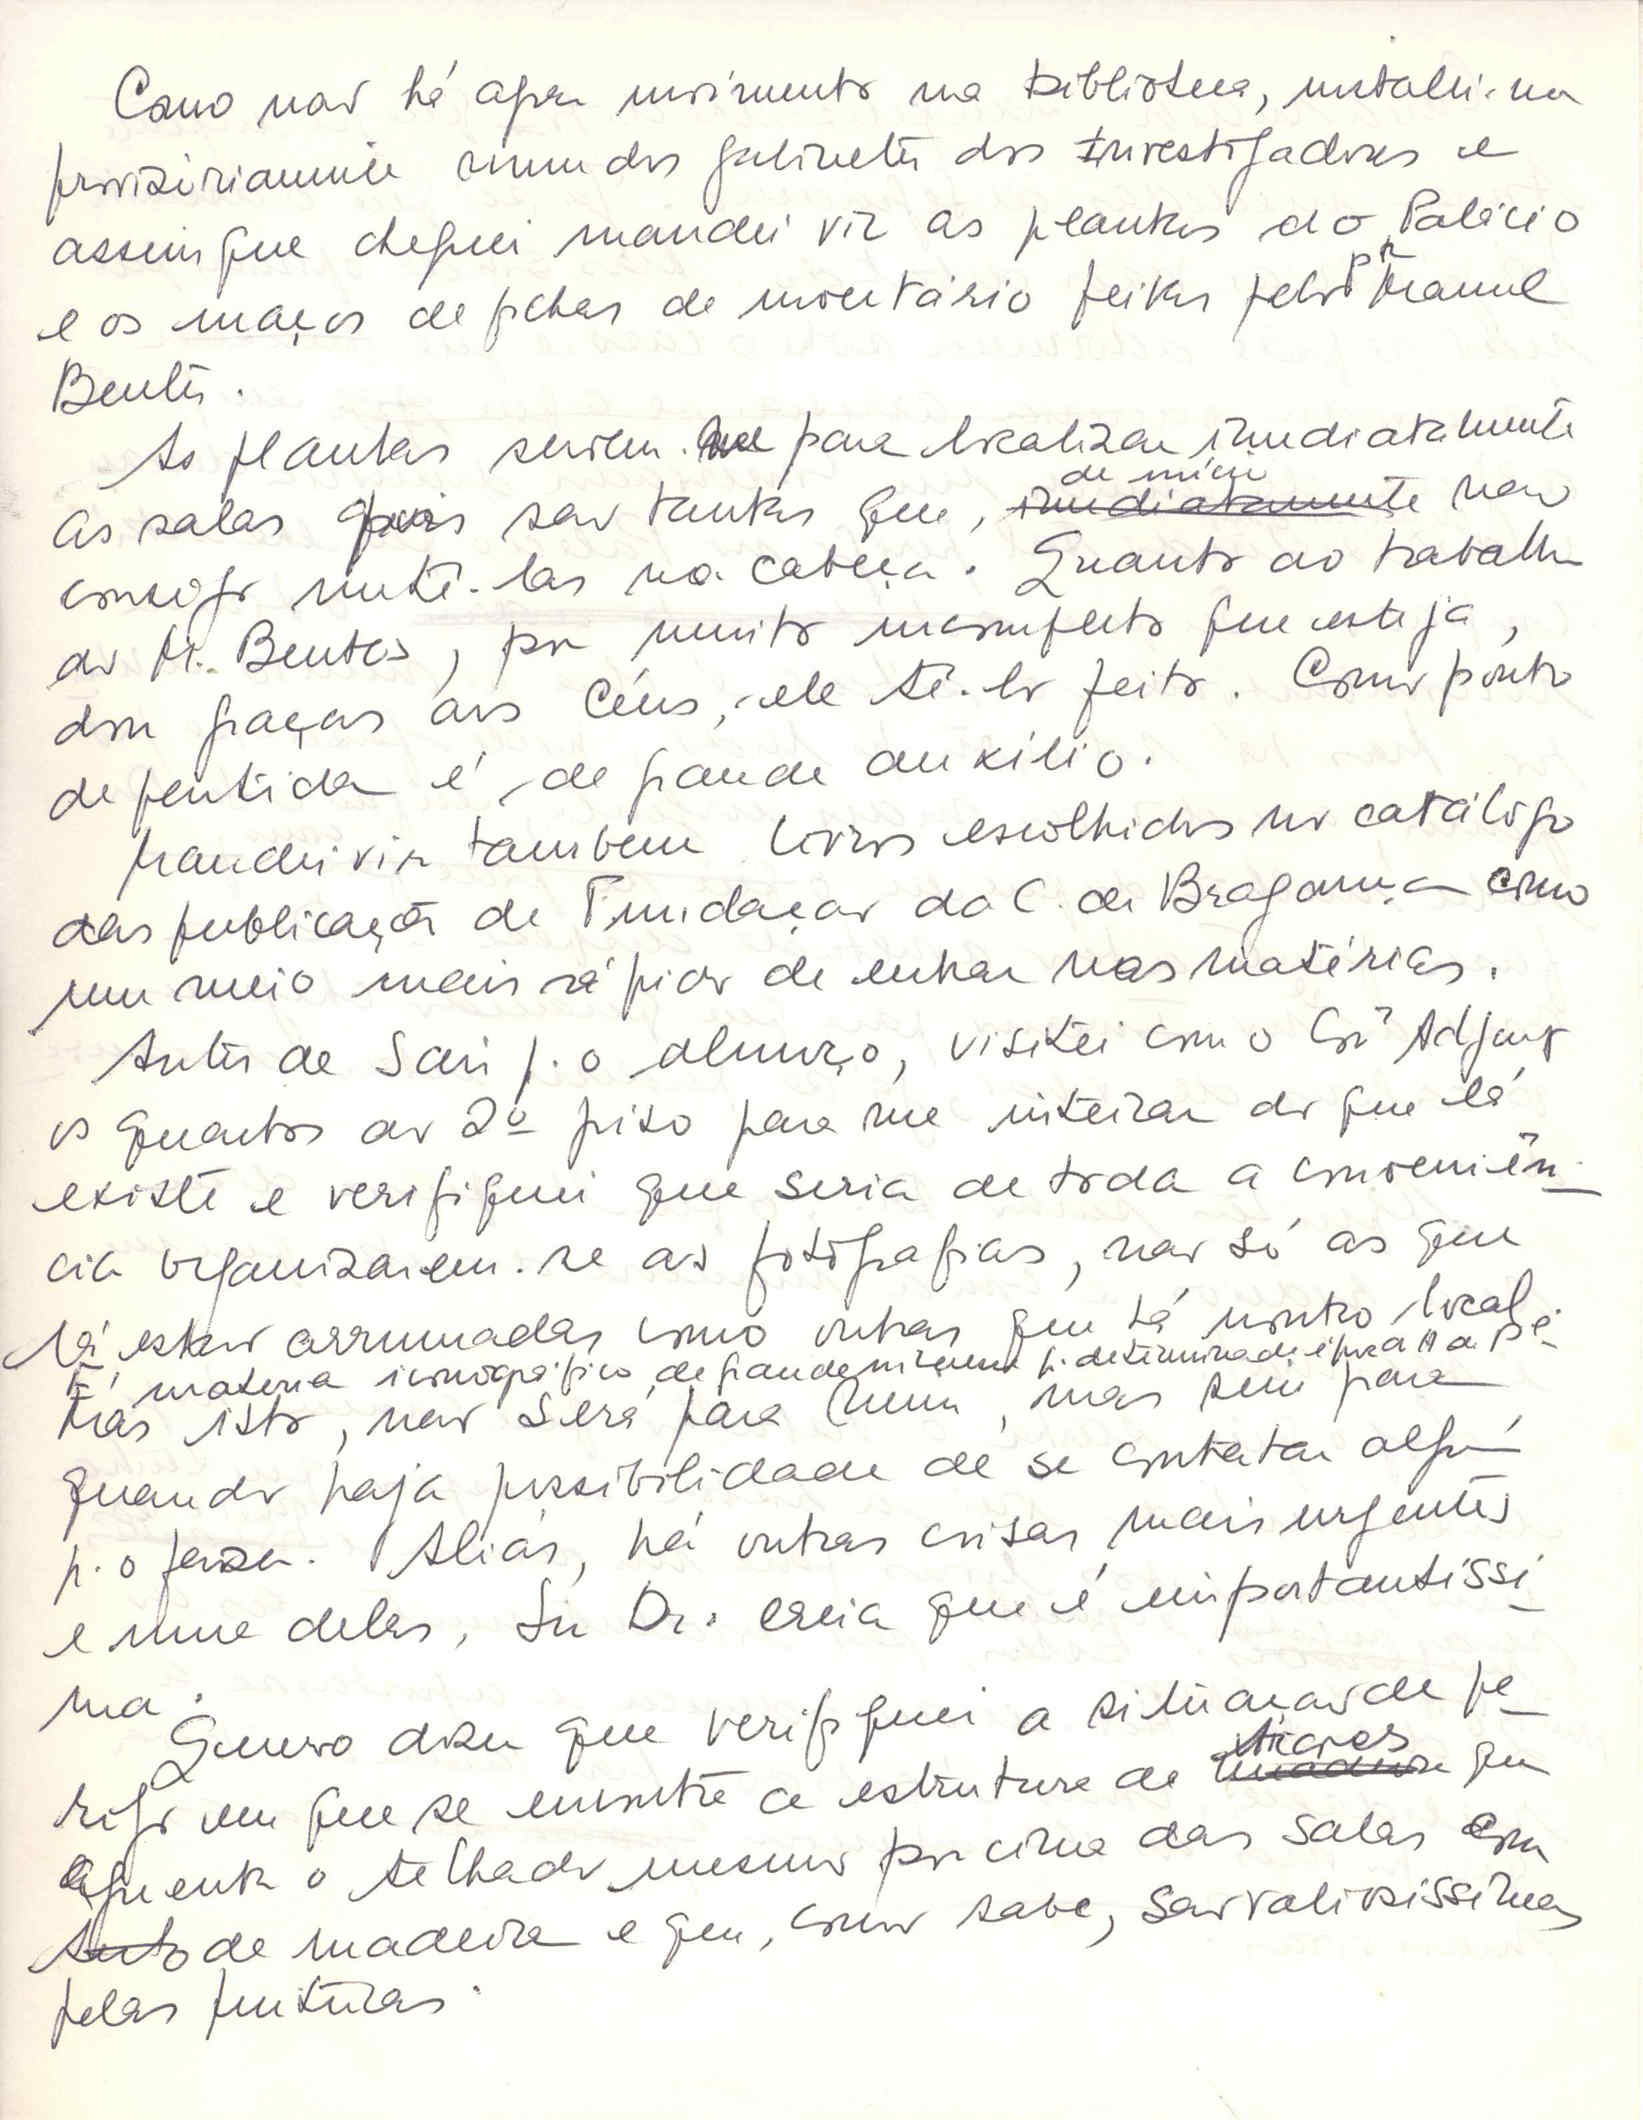 Como não há agora movimento na biblioteca, instalei-me
provisoriamente num dos gabinetes dos Investigadores e
assim que cheguei mandei vir as plantas do Palácio
e os maços de fichas de inventário feitas pelo Manuel
Bentes.
As plantas servem-me para localizar imediatamente
de início
as salas pois são tantas que, imediatamente não
consigo metê-las na cabeça. Quanto ao trabalho
do M. Bentes, por muito incompleto que esteja,
dou graças aos Céus, ele tê-lo feito. Como ponto
de partida é de grande auxílio.
Mandei vir também livros escolhidos no catálogo
das publicações de Fundação da C. de Bragança como
um meio mais rápido de entrar nas matérias.
Antes de sair p. o almoço, visitei com o Adjunto
os quartos do 2º piso para me inteirar do que lá
existe e verifiquei que seria de toda a conveniên-
cia organizarem-se as fotografias, não só as que
lá estão arrumadas como outras que há noutro local.
É materia iconográfico de grande interesse p. determinada época
Mas isto, não será para mim, mas sim para
quando haja possibilidade de se contatar alguém
p. o fazer. Aliás, há outras coisas mais urgentes
e uma delas, Sr. Dr. creia que é importantissi-
ma.
Quero dizer que verifiquei a situação de pe-
rigo em que se encontra a estrutura de madeira que
aguenta o telhado mesmo por cima das salas com
tecto de madeira e que, como sabe, são valiosissimas
pelas pinturas.